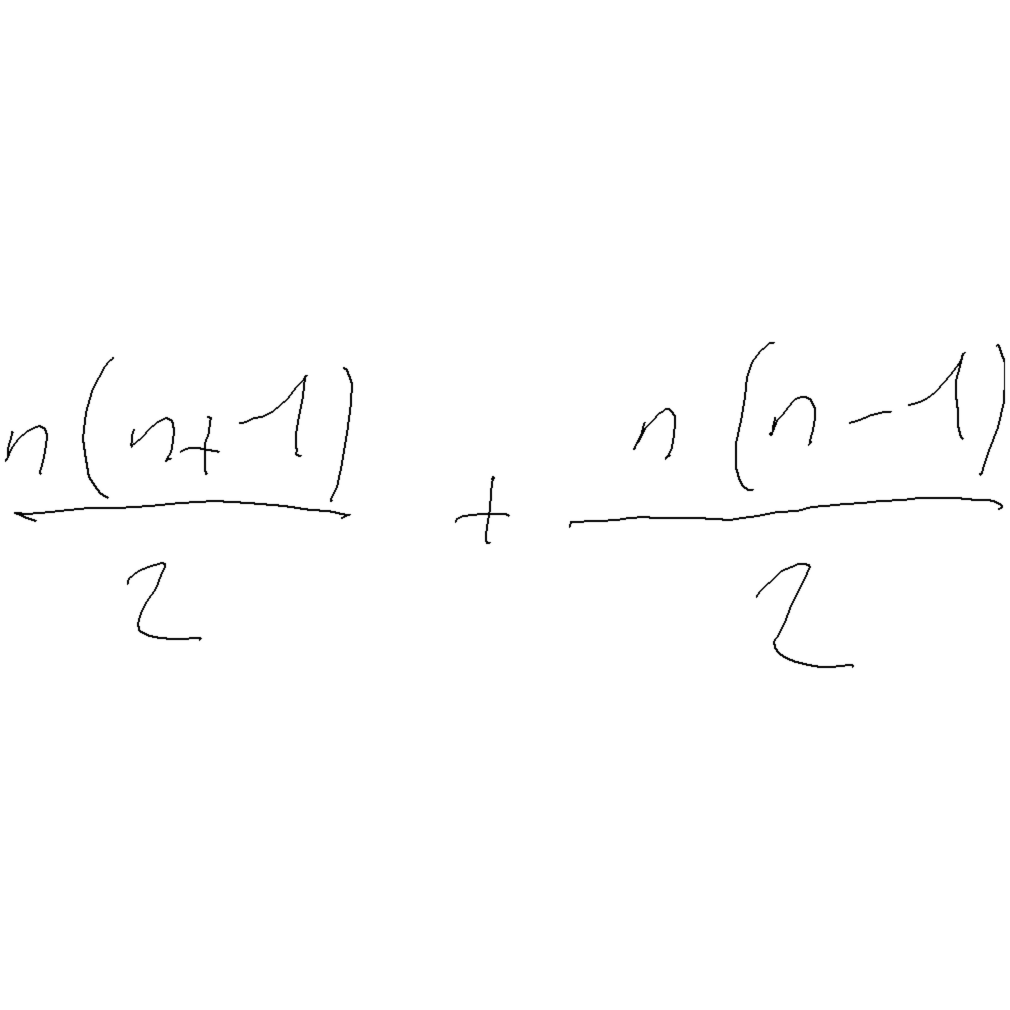 \frac{n(n+1)}{2} + \frac{n(n-1)}{2}